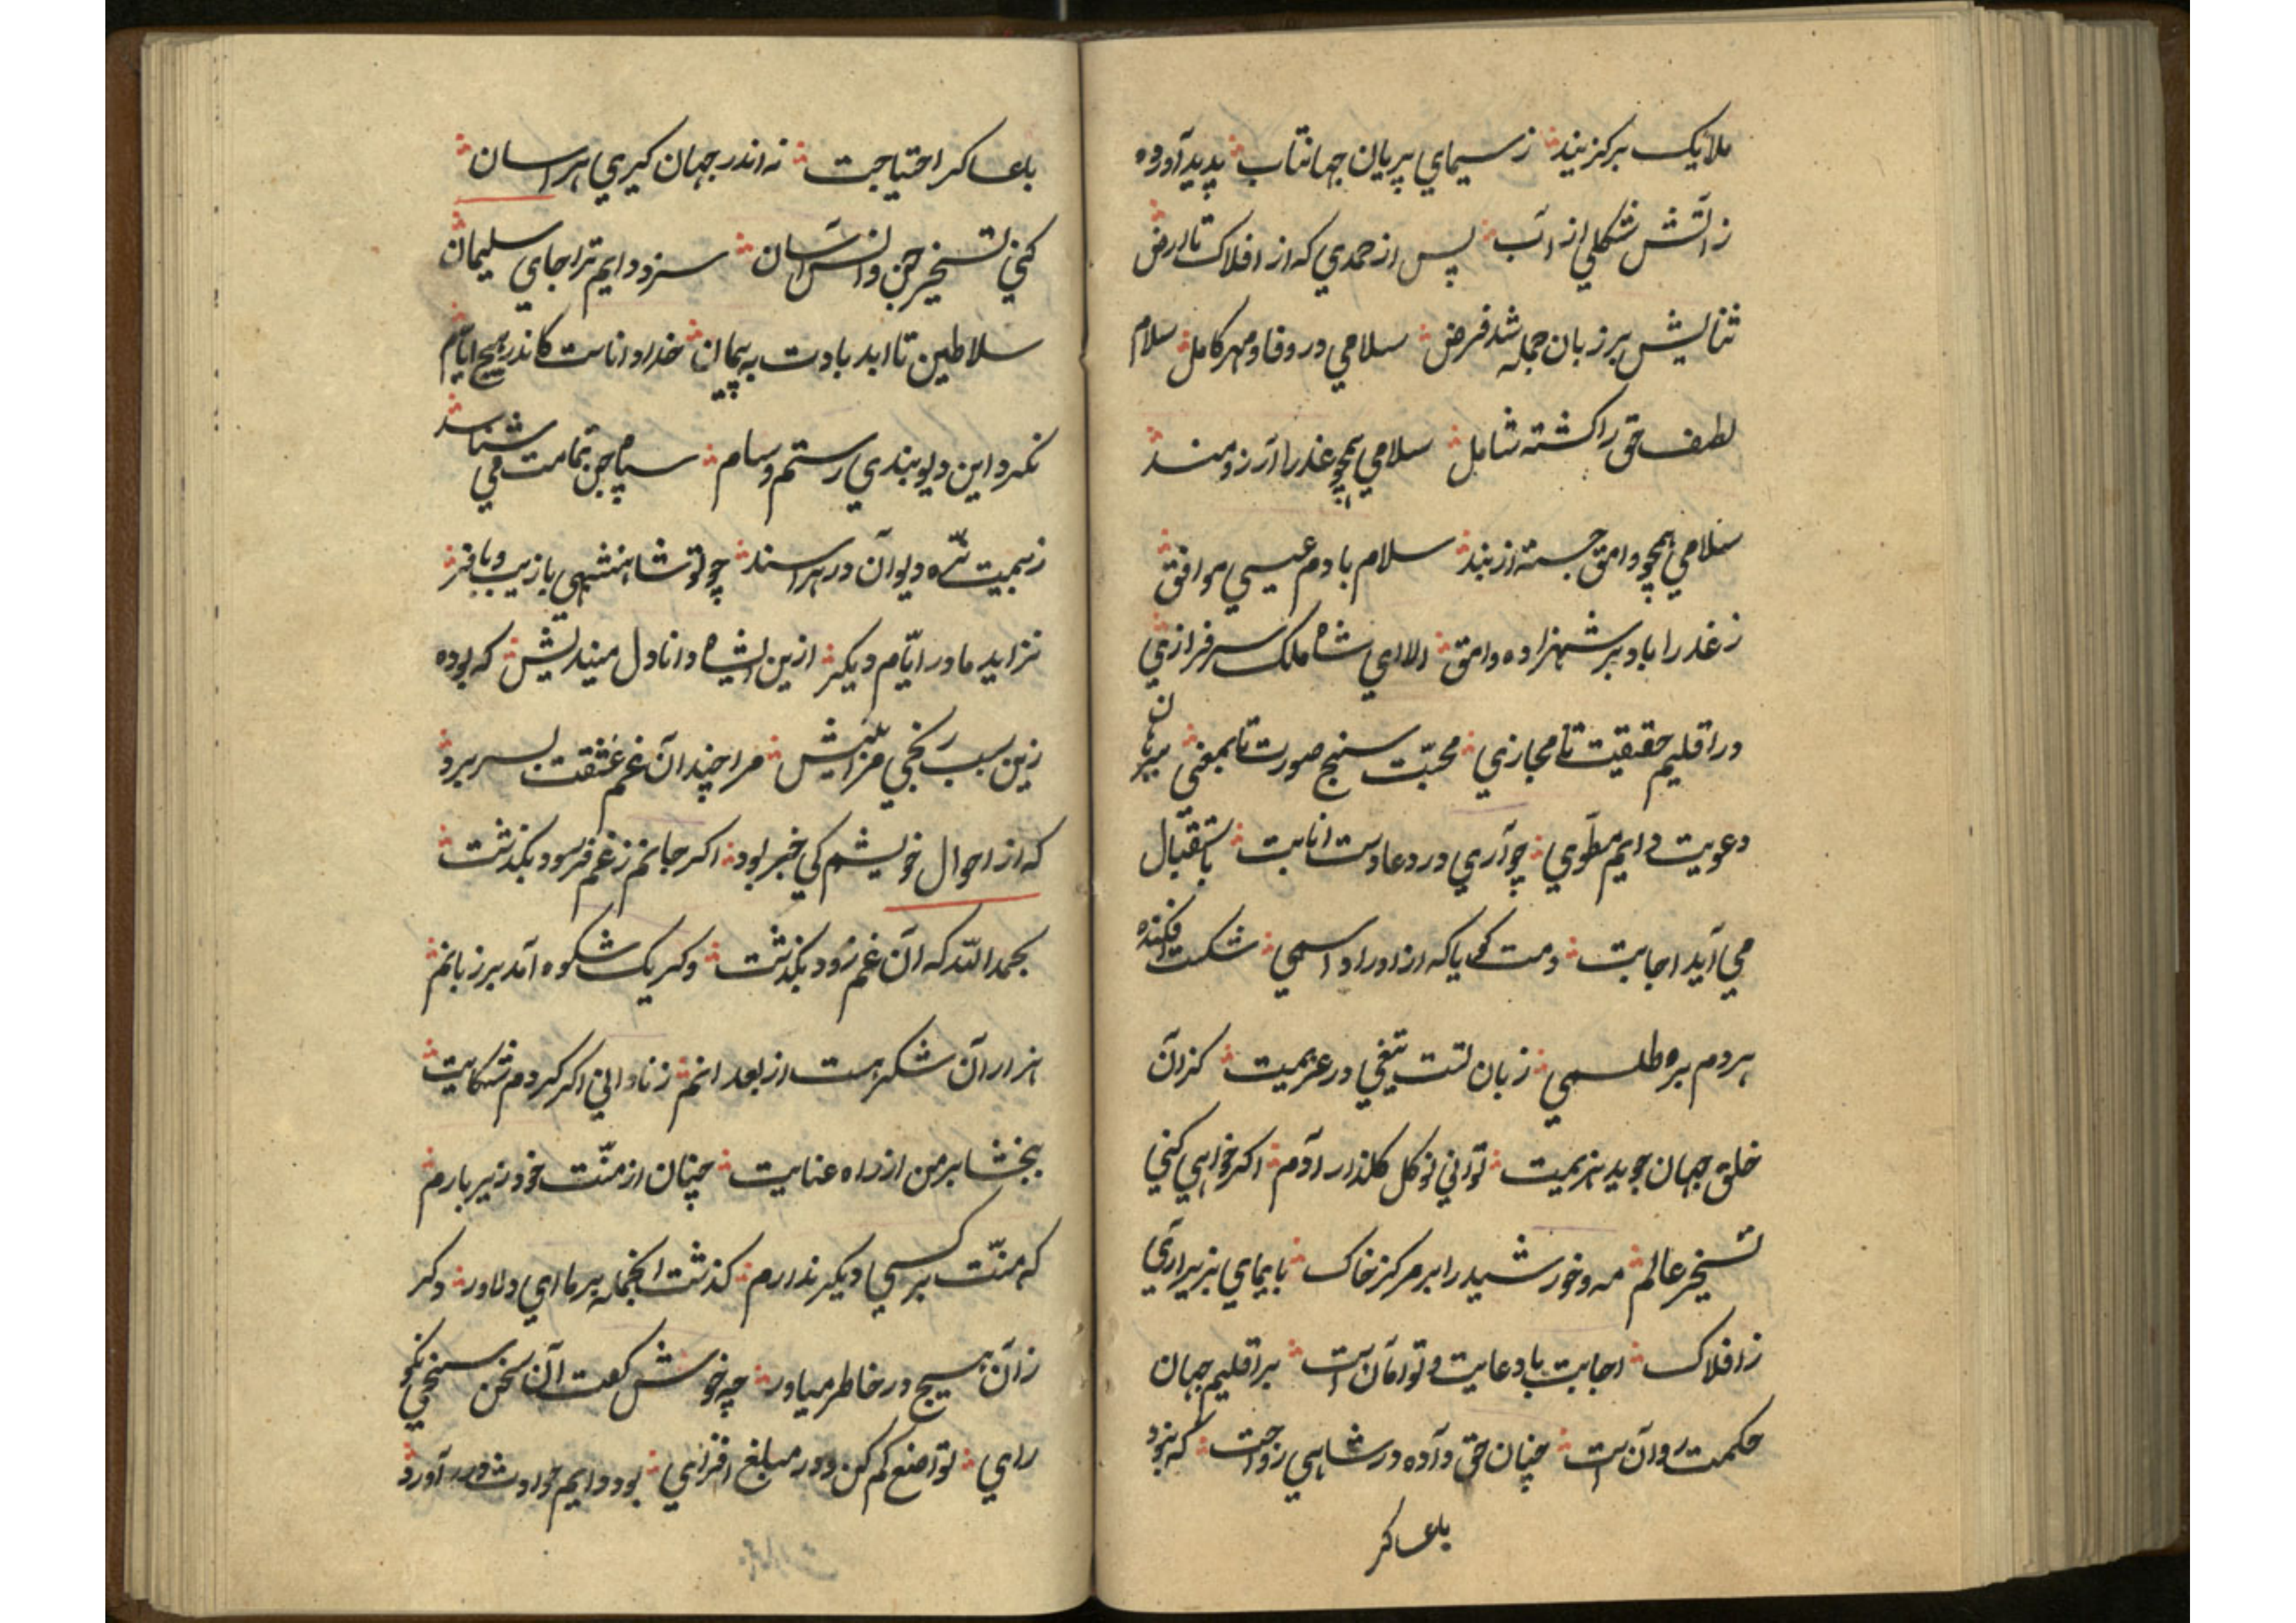 ملایک برکزیند ز سیمای پریان جهانتاب پدید آورده
ز آتش شکلی از آب پس از حمدی که از افلاک تا ارض
ثنایش بر زبان جمله شد فرض سلامی در وفا و مهر کامل سلام
لطف حق را کشته شامل سلامی همچو عذرا آرزومند
سلامی همچو وامق جسته از بند سلام بادم عیسی موافق
ز عذرا باد بر شهزاده وامق الا ای شاه ملک سرفرازی
در اقلیم حقیقت تا مجازی محبّت سنج صورت تا بمعنی
دعویت دایم مطوی چو آری در دعا دست انابت باستقبال
می آید اجابت دمت کویا که از اوراد اسمی شکست افکنده
هر دم بره طلسمی زبان تست تیغی در عزیمت کزان
خلق جهان جوید هزیمت توانی نو کل کلذار آدم اکر خواهی کنی
تسخیر عالم مه و خورشید را بر مرکز خاک بایمای بزیر آری
ز افلاک اجابت با دعایت توامان است بر اقلیم جهان
حکمت روان است چنان حق داده در شاهی رواجت که نبود
بلعساکر
بلعساکر احتیاجت نه اندر جهان کیری هراسان
کنی تسخیر جن و انس آسان سزد دایم ترا جای سلیمان
سلاطین تا ابد بادت به پیمان خدا داناست کاندر هیچ ایام
نکرد این دیوبندی رستم و سام سپاه جن تمامت می شناسد
ز بیمیت نره دیوان در هراسند چو تو شاهنشهی با زیب و با فر
نزاید مادر ایّام دیکر ازین ای شاه دانادل میندیش که بوده
زین سبب رنجی مرا بیش مرا چندان غم عشقت بسر برد
که از احوال خویشم کی خبر بود اکر جانم ز غم فرسود بکذشت
بحمد الله که آن غم زود بکذشت و کر یک شکوه آمد بر زبانم
هزاران شکر هست از بعد انم ز نادانی اکر کردم شکایت
ببخشا بر من از راه عنایت چنان از منّت خود زیر بارم
که منّت بر کسی دیکر ندارم کذشت انجمله بر ما ای دلاور دکر
زان هیچ در خاطر میاور چه خوش کفت آن سخن سنجی نکو
رای تواضع کم کن و در مبلغ افزای بود دایم حوادث در آورد